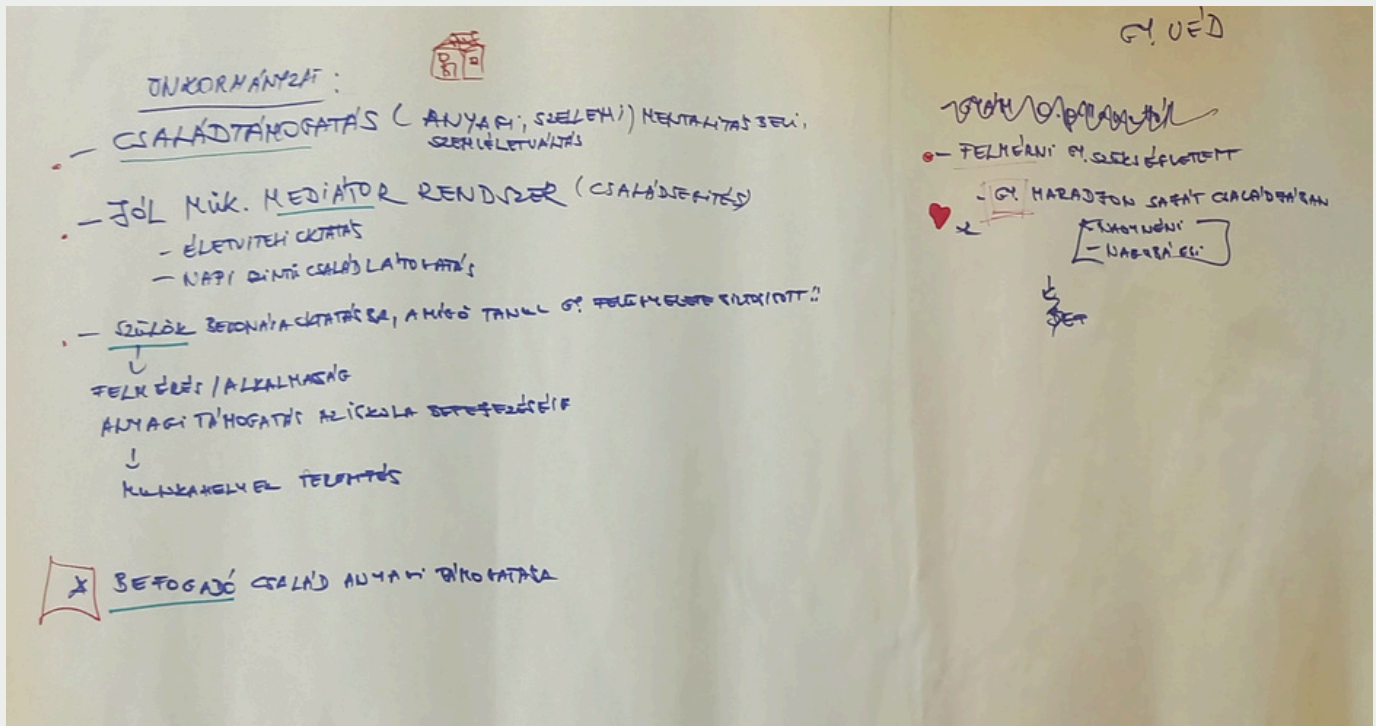 ÖNKORMÁNYZAT:
- CSALÁDTÁMOGATÁS (ANYAGI, SZELLEMI) MENTALITÁSBELI,
SZEMLÉLETVÁLTÁS
- JÓL MŰK. MEDIÁTOR RENDSZER (CSALÁDSEGITÉS)
- ÉLETVITELI OKTATÁS
- NAPI SZINTŰ CSALÁDLÁTOGATÁS
- SZÜLŐK BEVONÁSA OKTATÁSBA, AMIG Ő TANUL GY. FELÜGYELETE BIZTOSITOTT!!
FELMÉRÉS / ALKALMASSÁG
ANYAGI TÁMOGATÁS AZ ISKOLA BEFEJEZÉSÉIG
MUNKAHELYEK TEREMTÉS
* BEFOGADÓ CSALÁD ANYAGI TÁMOGATÁSA
GY. VÉD
- FELMÉRNI GY. SZÜKSÉGLETEIT
- GY. MARADJON SAJÁT CSALÁDJÁBAN
- NAGYNÉNI
- NAGYBÁCSI